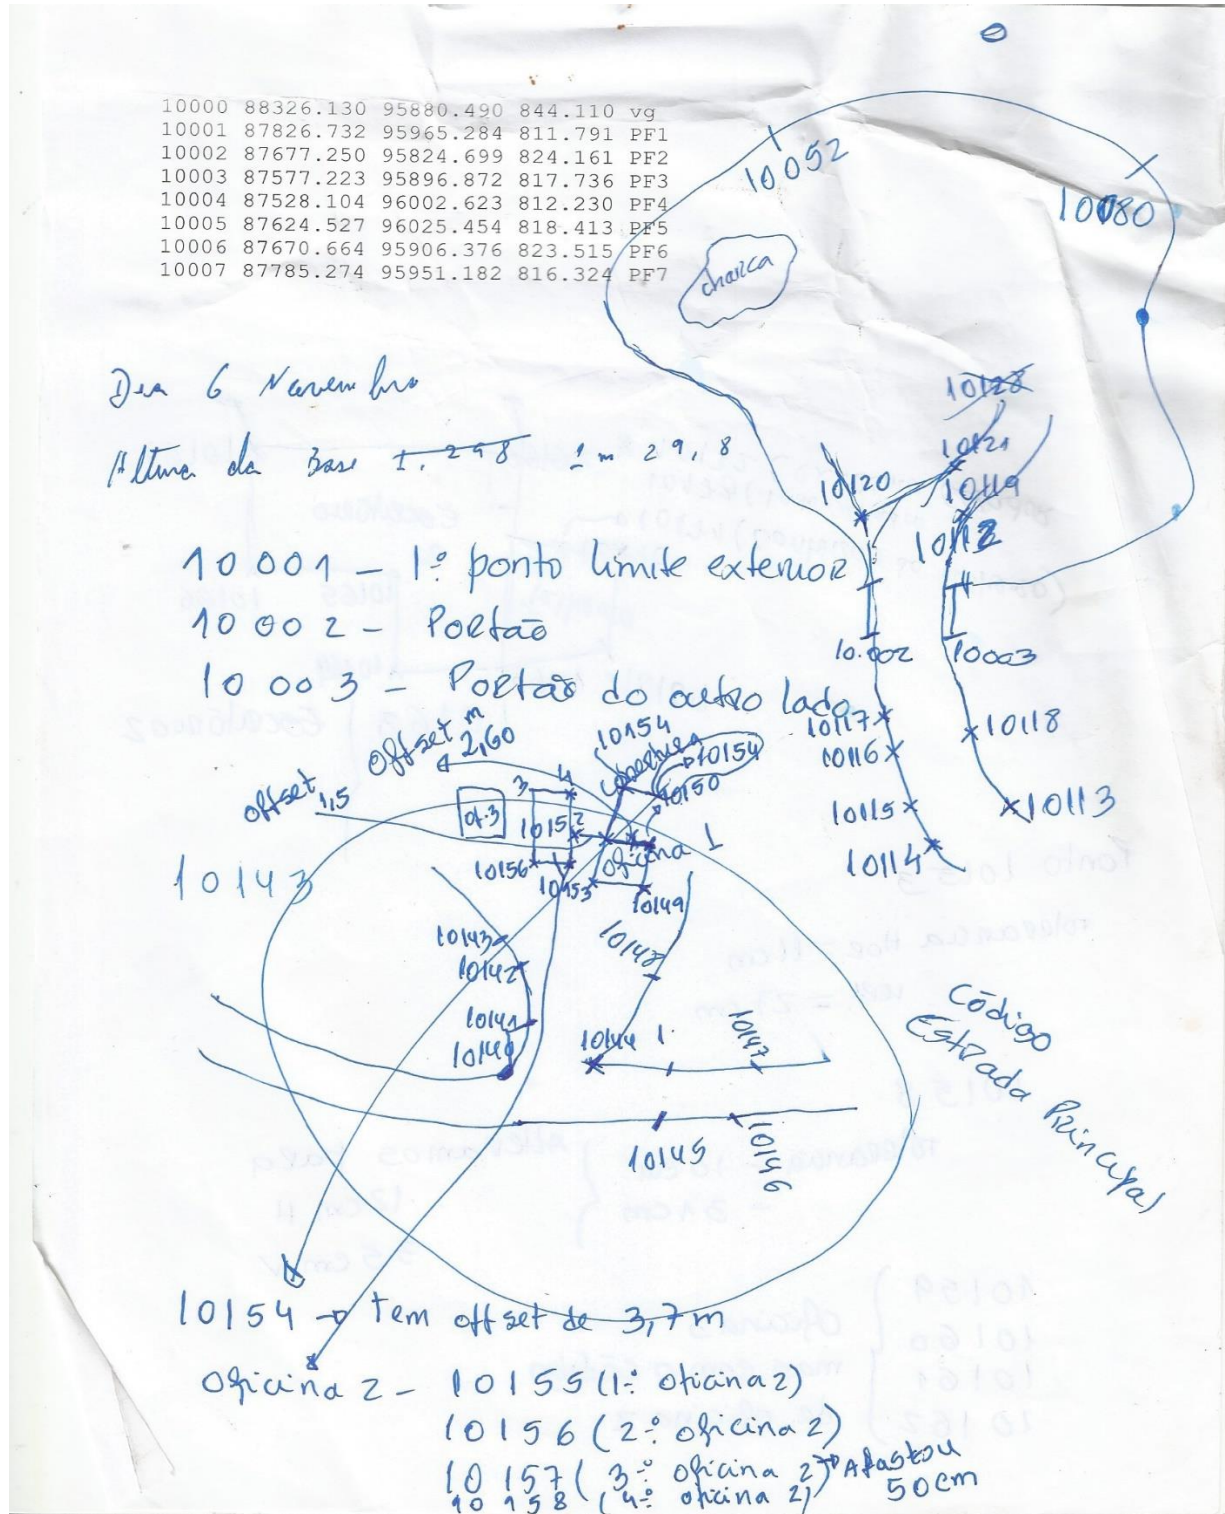 10000 88326.130 95880.490 844.110 vg
10001 87826.732 95965.284 811.791 PF1
10002 87677.250 95824.699 824.161 PF2
10003 87577.223 95896.872 817.736 PF3
10004 87528.104 96002.623 812.230 PF4
10005 87624.527 96025.454 818.413 PF5
10006 87670.664 95906.376 823.515 PF6
10007 87785.274 95951.182 816.324 PF7
10052
10080
charca
Dia 6 Novembro
Altura da Base 1.298 1m 29,8
10128
10121
10120
10119
10112
10001 - 1º ponto limite exterior
10002 - Portão
10003 - Portão do outro lado
10.002
10003
10117
10118
10116
10115
10113
10114
offset 2,60 m
offset 1,5
10154
cobertura
10154
10150
3
4
of.3
10152
2
oficina 1
10156
1
10153
10149
10143
10143
10148
10142
10141
10140
10144
1
10147
10145
10146
Código
Estrada Principal
10154 → tem offset de 3,7m
Oficina 2 - 10155 (1º oficina 2)
10156 (2º oficina 2)
10157 (3º oficina 2) → Afastou 50cm
10158 (4º oficina 2)